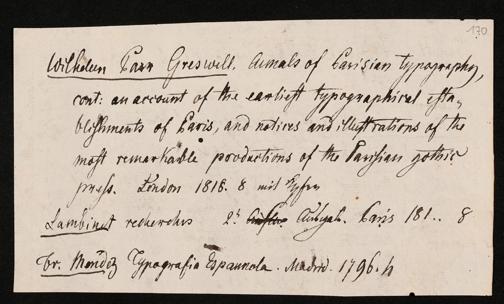 170
Wilhelm Parr Greswell. Annals of Parisian typography,
cont: an account of the earliest typographical esta,,
blishments of Paris, and notices and illustrations of the
most remarkable productions of the Parisian gothic
press. London 1818. 8 mit Kpfrn
Lambinet recherches 2t Ausgab. Paris 181.. 8
Fr. Mendez Typografia Espannola. Madrid. 1796. 4